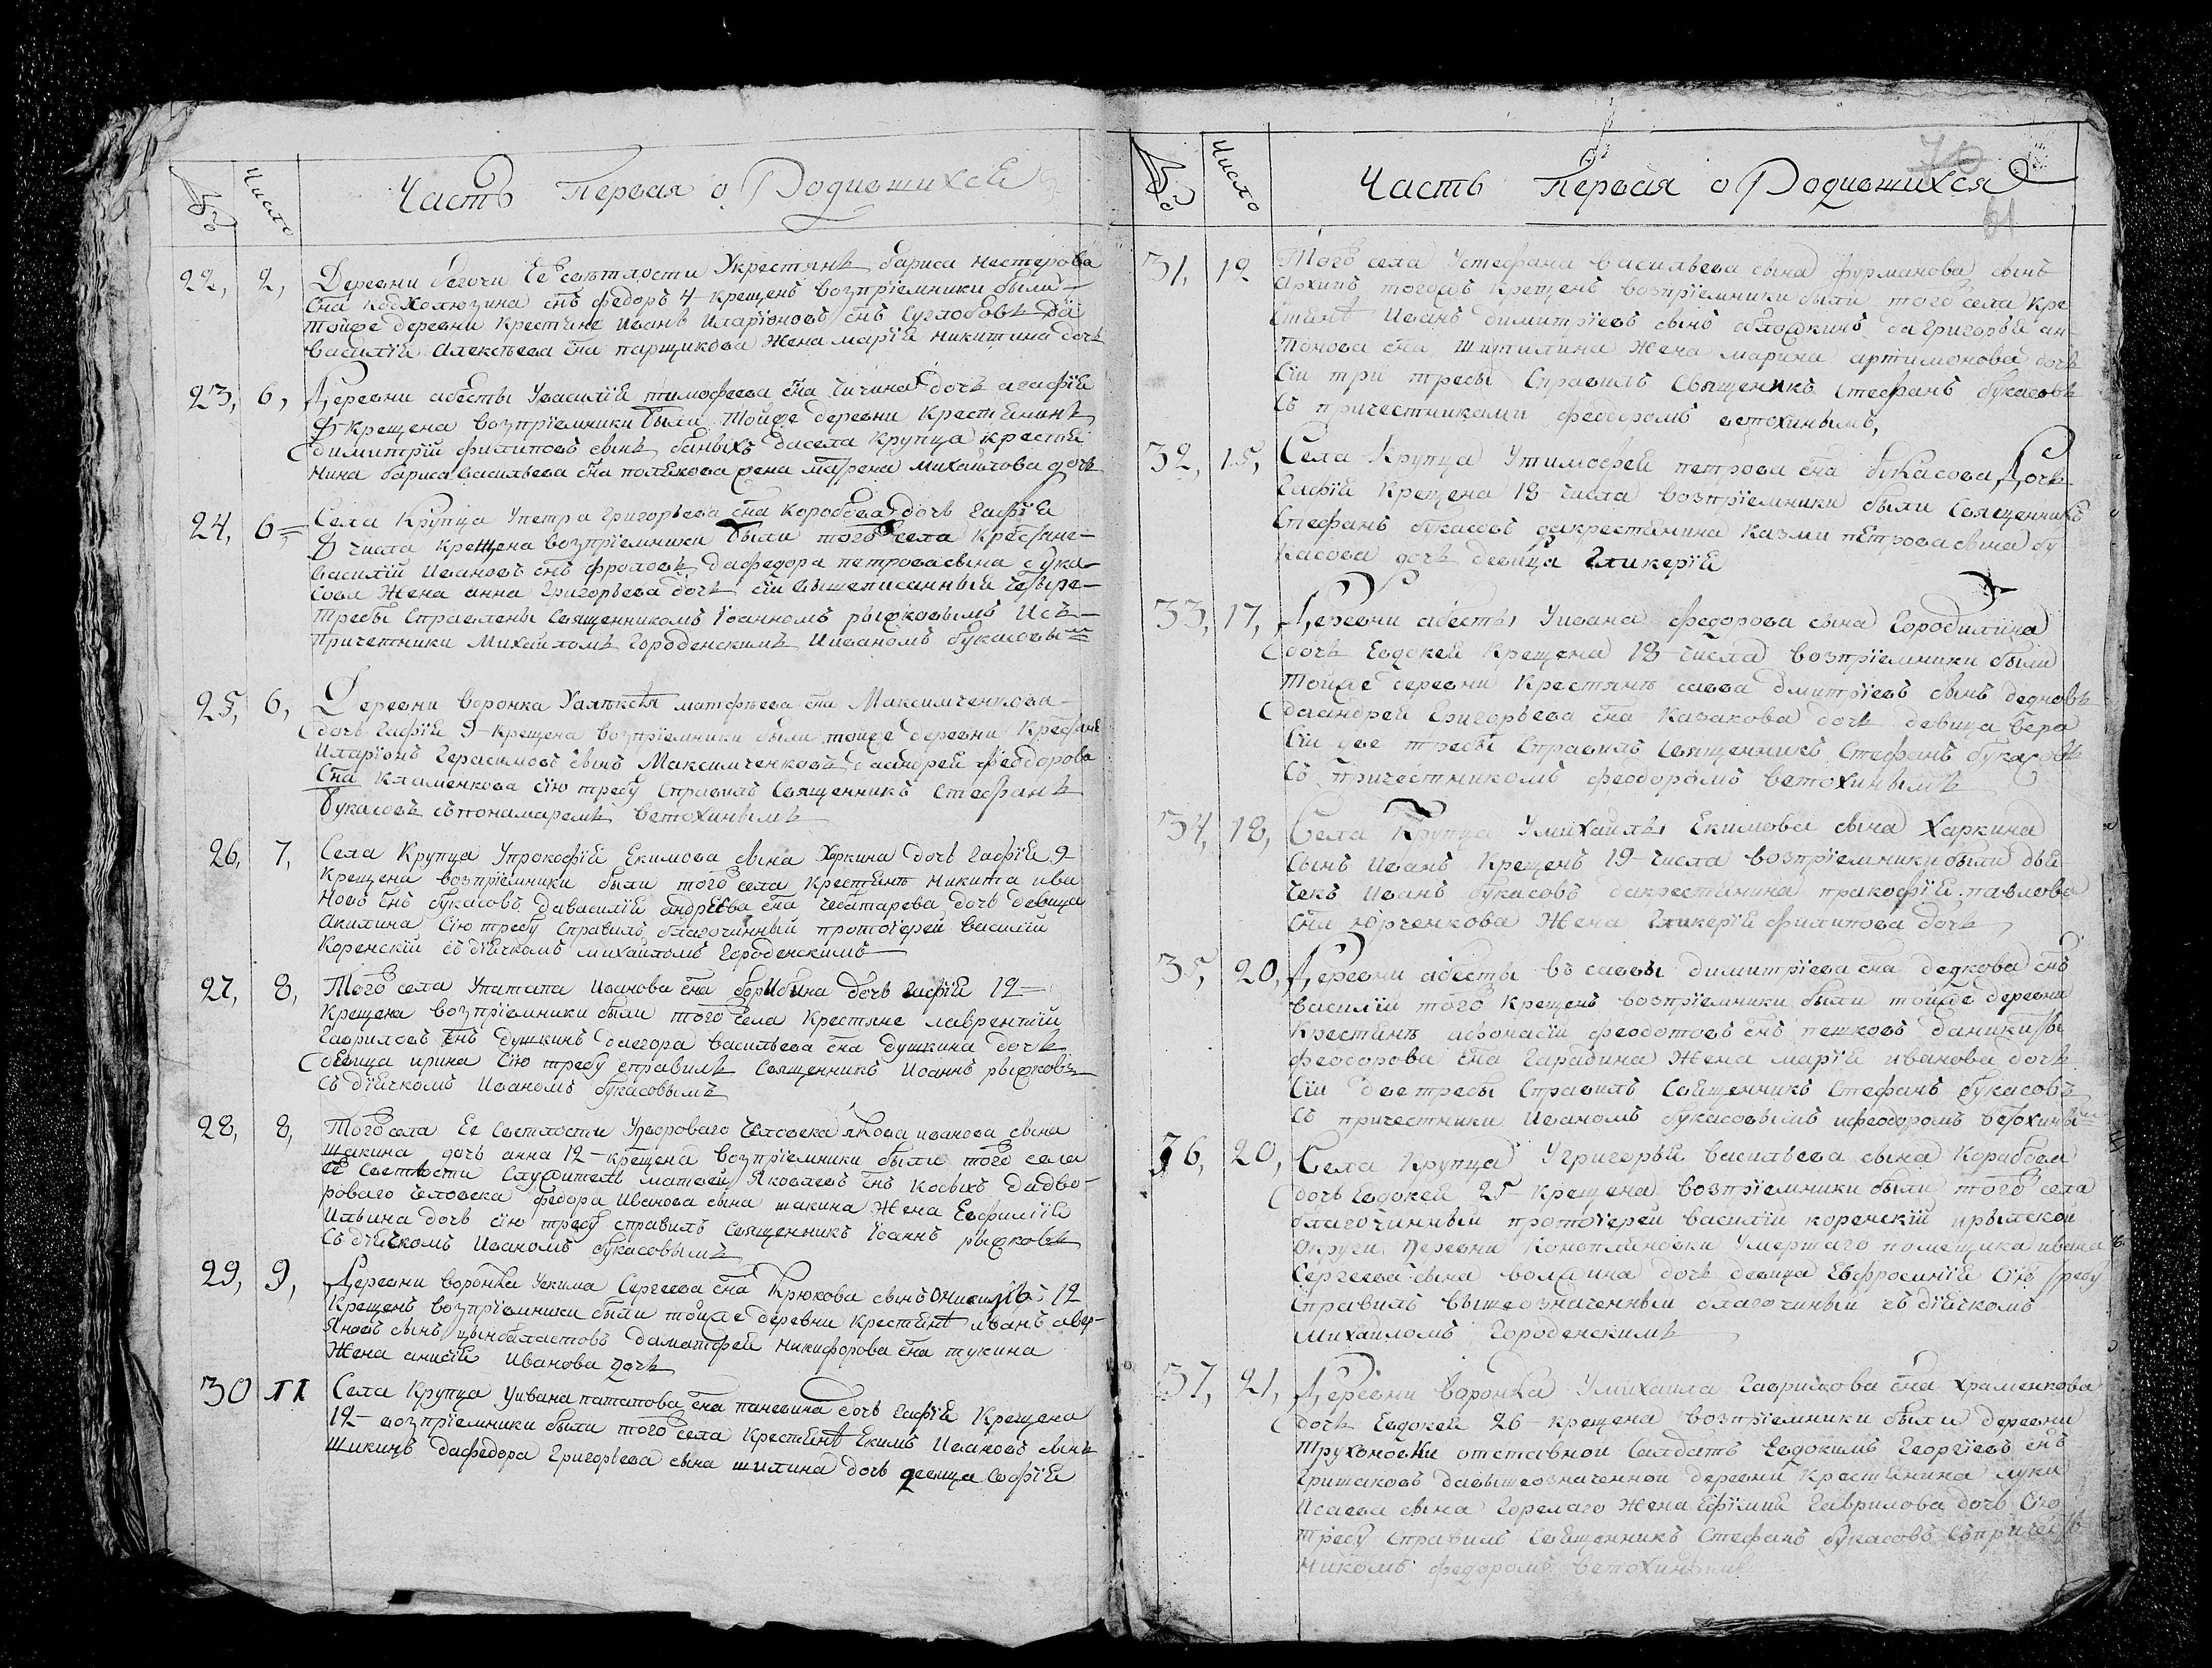 №
Число
Часть Первая о Родившихся
22, 2, Деревни Ее Светлости Укрестянъ бариса нестерова
сна снъ федоръ 4 крещенъ возпрїемники были
тойже деревни крестяне Иванъ Иларїоновъ снъ Суглобовъ да
василїя Алексѣева сна паршикова жена марїя никитина дочь
23, 6, Деревни абесты Увасилїя тимофеева сна чичина дочь агафїя
8 крещена возпрїемники были тойже деревни крестянинъ
димитрїй филиповъ сынъ дасела крупца крестя
нина бариса васильева сна полякова жена матрена михайлова дочь
24, 6, Села крупца Упетра григорьева сна коробова дочь гафїя
8 числа крещена возпрїемники были того села крестяне
василїй Ивановъ снъ фроловъ дафедора петрова сына бука
сова жена анна григорьева дочь сїи вышеписанный четыре
требы справлены священникомъ Їоанномъ рыжковымъ Исъ
причетники Михайломъ городенскимъ Иваномъ букасовым
25, 6, Деревни воронка матфѣева сна Максимченкова
дочь гафїя 9 крещена возпрїемники были тойже деревни крестяне
Иларїонъ герасимовъ сынъ Максимченковъ даандрея феодорова
сна кламенкова сїю требу справилъ священникъ стефанъ
букасовъ съпонамаремъ ветохинымъ
26, 7, Села Крупца Упрокофїя Екимова сына Харкина дочь гафїя 9
крещена возпрїемники были того села крестянъ никита ива
новъ снъ букасовъ давасилїя андреева сна чеботарева дочь девица
акилина сїю требу справилъ благочинный протоїерей василїй
Коренскїй съдїячкомъ михайломъ городенскимъ
27, 8, Того села Упатапа Иванова сна дочь гафїя 12
крещена возпрїемники были того села крестяне лаврентїй
гавриловъ снъ душкинъ даегора васильева сна душкина дочь
девица ирина сїю требу справилъ священникъ Иоаннъ рыжковъ
съдїячкомъ Иваномъ букасовымъ
28, 8, Того села Ее Светлости Удвороваго человека якова иванова сына
шакина дочь анна 12 крещена возпрїемники были того села
Ее Светлости служитель матвей Яковлевъ снъ косыхъ дадво-
роваго человека федора Иванова сына шакина жена Евфимїя
Ильина дочь сїю требу справилъ священникъ Їоаннъ рыжковъ
съдїячкомъ Иваномъ букасовымъ
29, 9, Деревни воронка Уекима Сергеева сна Крюкова сынъ 12
крещенъ возпрїемники были тойже деревни крестянъ иванъ авер-
яновъ сынъ даматфея никифорова сна тукина
жена анисїя Иванова дочь
30 11 Села Крупца Уивана патапова сна паневина дочь гафїя крещена
12 возпрїемники были того села крестянъ Екимъ Ивановъ сынъ
шикинъ дафедора григорьева сына шилина дочь девица Софїя
№
Число
Часть Первая о Родившихся
61
31, 12 Того села Устефана васильева сына фурманова сынъ
архипъ тогожъ крещенъ возпрїемники были того села кре
стянъ Иванъ димитрїевъ сынъ даГригорья ан-
тонова сна шитилина жена марина артимонова дочь
сїи три требы справилъ священникъ стефанъ букасовъ
съ причестниками феодоромъ ветохинымъ,
32, 15, Села Крупца Утимофея петрова сна букасова дочь
гафїя крещена 18 числа возпрїемники были священникъ
стефанъ букасовъ дакрестянина казми петрова сына бу
касова дочь девица гликерїя
33, 17, Деревни абесты Уивана федорова сына городилина
дочь Евдокея крещена 18 числа возпрїемники были
тойже деревни крестянъ савва дмитрїевъ сынъ дедковъ
даандрея григорьева сна казакова дочь девица вера
сїи две требы справилъ священникъ стефанъ букасовъ
съ причестникомъ феодоромъ ветохинымъ
34, 18, Села Крупца Умихайлы Екимова сына Харкина
сынъ Иванъ крещенъ 19 числа возпрїемники были дья
чекъ Иванъ букасовъ дакрестянина пракофїя павлова
сна юрченкова жена гликерїя филипова дочь
35, 20, Деревни абесты въ саввы димитрїева сна дедкова снъ
василїй того крещенъ возпрїемники были тойже деревни
крестянъ афонасїй феодотовъ снъ пешковъ даникиты
феодорова сна гарабина жена марїя иванова дочь
сїи две требы справилъ священникъ стефанъ букасовъ
съ причестники Иваномъ букасовымъ ифеодоромъ ветохины
36, 20, Села Крупца Угригорья васильева сына Карабова
дочь Евдокея 25 крещена возпрїемники были того села
благочинный протоїерей василїй коренскїй ирылской
округи деревни Коноплановки умершаго помещика ивана
Сергеева сына волжина дочь девица Евфросинїя сїю требу
справилъ вышеозначенный благочиный съдїячкомъ
михайломъ городенскимъ
37, 21, Деревни воронка Умихаила гаврилова сна храменкова
дочь Евдокея 26 крещена возпрїемники были деревни
трухоновки отставной салдатъ Евдокимъ георгїевъ снъ
гришаковъ давышеозначенной деревни крестянина луки
Исаева сына горелаго жена Ефїмия гаврилова дочь сїю
требу справилъ священникъ стефанъ букасовъ съпричест
никомъ федоромъ ветохинымъ